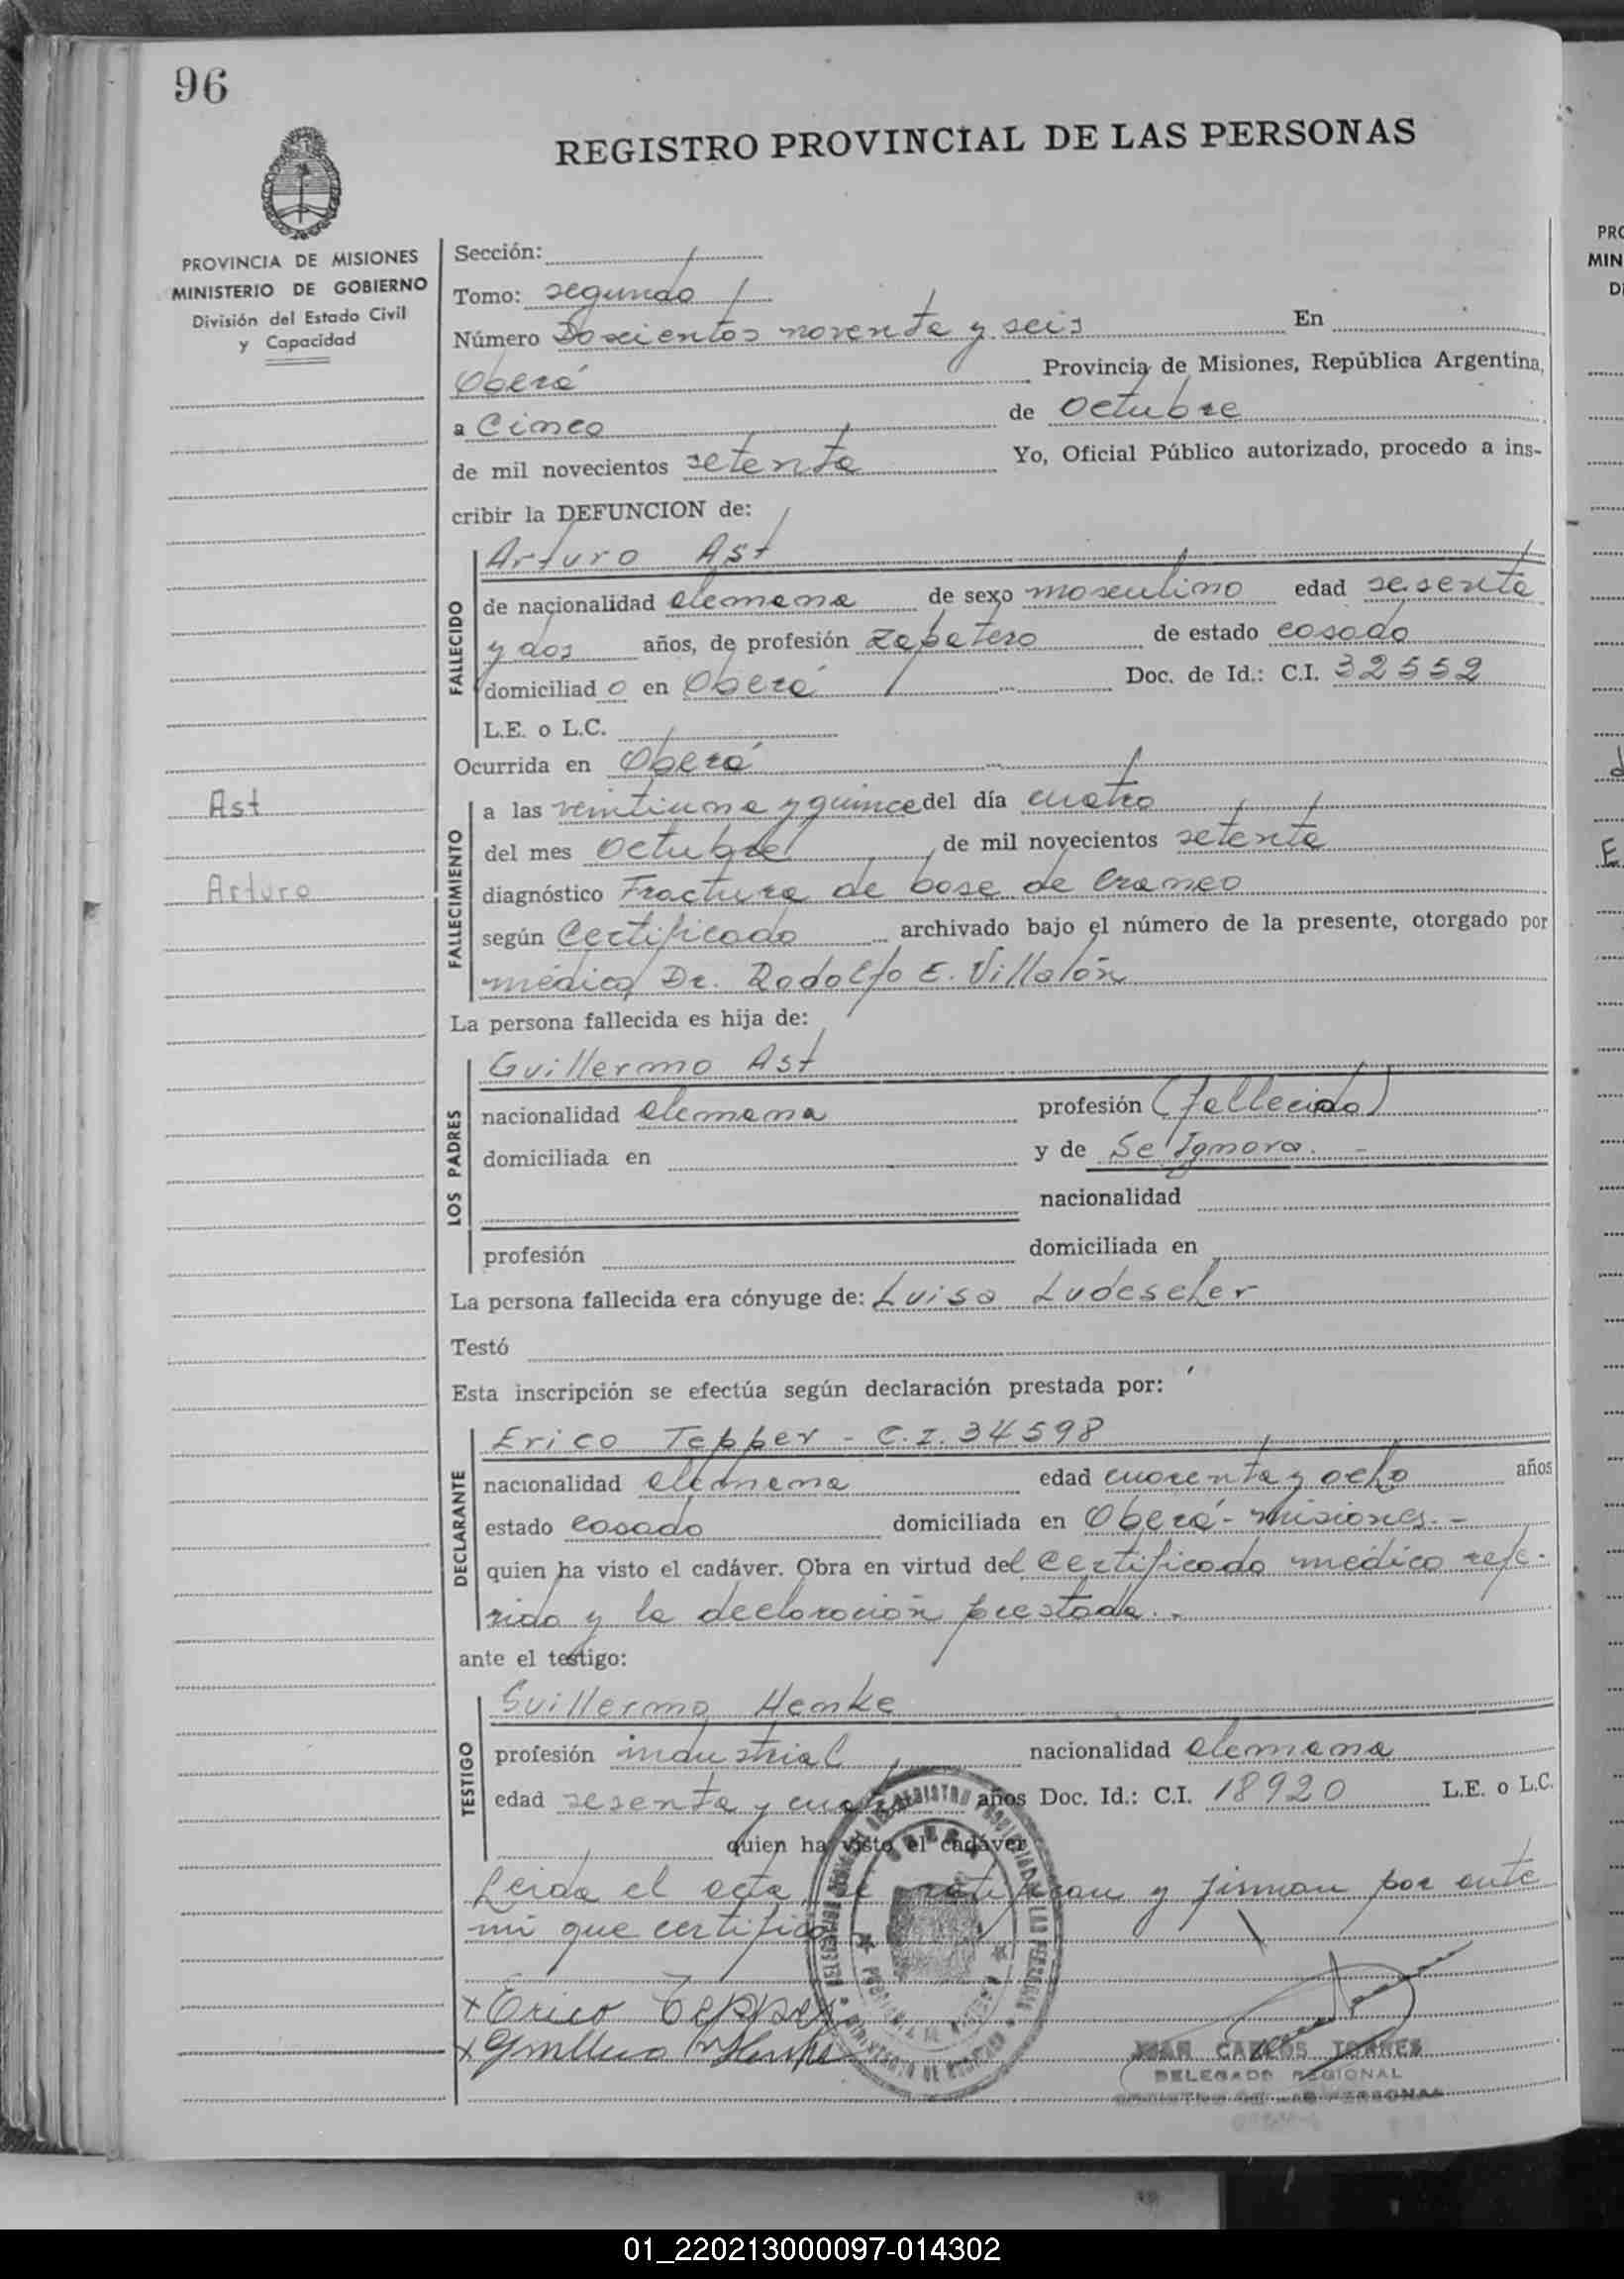 96
REGISTRO PROVINCIAL DE LAS PERSONAS
PROVINCIA DE MISIONES
MINISTERIO DE GOBIERNO
División del Estado Civil
y Capacidad
Ast
Arturo
Sección:
Tomo: segundo
Número Doscientos noventa y seis En
Oberá Provincia de Misiones, República Argentina,
a Cinco de Octubre
de mil novecientos setenta Yo, Oficial Público autorizado, procedo a ins-
cribir la DEFUNCION de:
FALLECIDO
Arturo Ast
de nacionalidad alemana de sexo masculino edad sesenta
y dos años, de profesión zapatero de estado casado
domiciliad o en Oberá Doc. de Id.: C.I. 32552
L.E. o L.C.
Ocurrida en Oberá
FALLECIMIENTO
a las veintiuna y quince del día cuatro
del mes Octubre de mil novecientos setenta
diagnóstico Fractura de base de Craneo
según Certificado archivado bajo el número de la presente, otorgado por
médico Dr. Rodolfo E. Villalón
La persona fallecida es hija de:
LOS PADRES
Guillermo Ast
nacionalidad alemana profesión (fallecido)
domiciliada en y de Se Ignora. -
nacionalidad
profesión domiciliada en
La persona fallecida era cónyuge de: Luisa Ludescher
Testó
Esta inscripción se efectúa según declaración prestada por:
DECLARANTE
Erico Tepper - C.I. 34598
nacionalidad alemana edad cuarenta y ocho años
estado casado domiciliada en Oberá - Misiones. -
quien ha visto el cadáver. Obra en virtud del Certificado médico refe-
rido y la declaración prestada. -
ante el testigo:
TESTIGO
Guillermo Henke
profesión industrial nacionalidad alemana
edad sesenta y cuatro años Doc. Id.: C.I. 18920 L.E. o L.C.
quien ha visto el cadáver
Leida el acta, se ratifican y firman por ante
mi que certifico
x Erico Tepper
x Guillermo Henke
JUAN CARLOS TORRES
DELEGADO REGIONAL
REGISTRO DE LAS PERSONAS
PRO
MIN
D
01_220213000097-014302